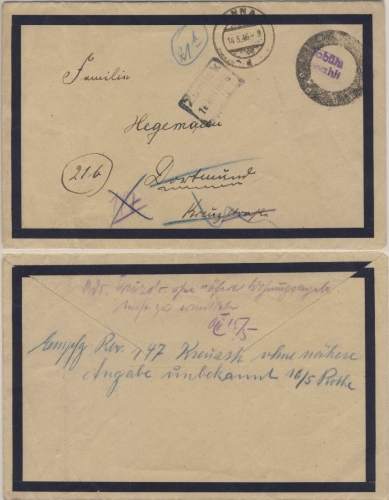 UNNA
14.5.46-9
d
Gebühr
bezahlt
Familie
Hegemann
21b
Dortmund
Kreuzstraße
ohne nähere Wohnungsangabe
nicht zu ermitteln
15/5
Empfg Rev. 147 Kreuzstr ohne nähere
Angabe unbekannt 16/5 Rothe